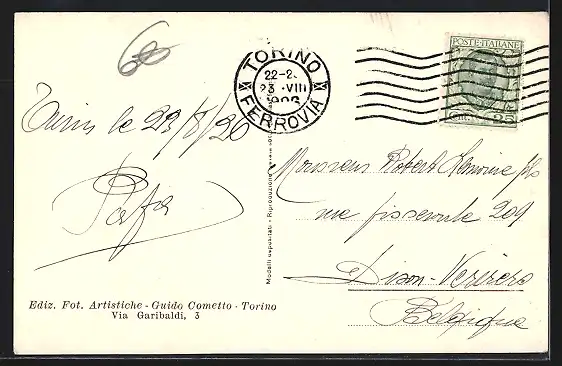 60
TORINO
22-2
23 · VIII
FERROVIA
POSTE · ITALIANE
25
Turin le 23/8/26
Papa
Monsieur Robert fils
rue 209
Dison-Verviers
Belgique
Modelli depositati - Riproduzione
Ediz. Fot. Artistiche - Guido Cometto - Torino
Via Garibaldi, 3